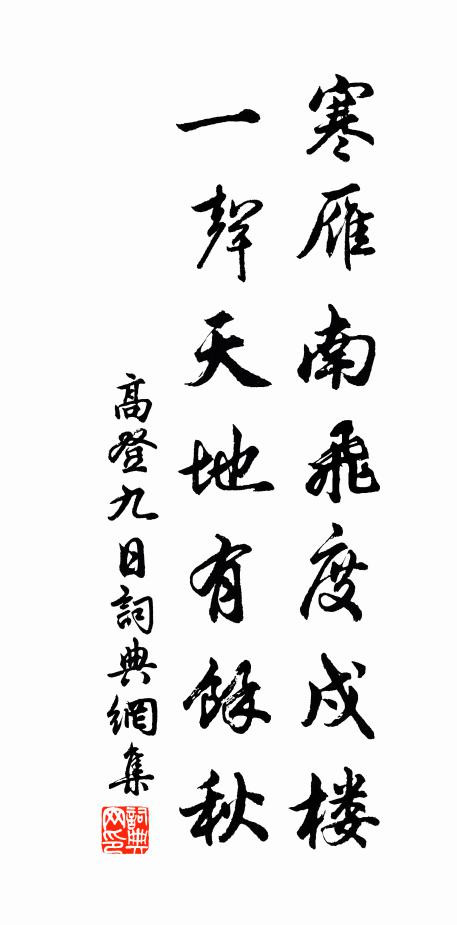 寒雁南飛度戍楼
一聲天地有餘秋
高登九日詞典網集
詞典网印